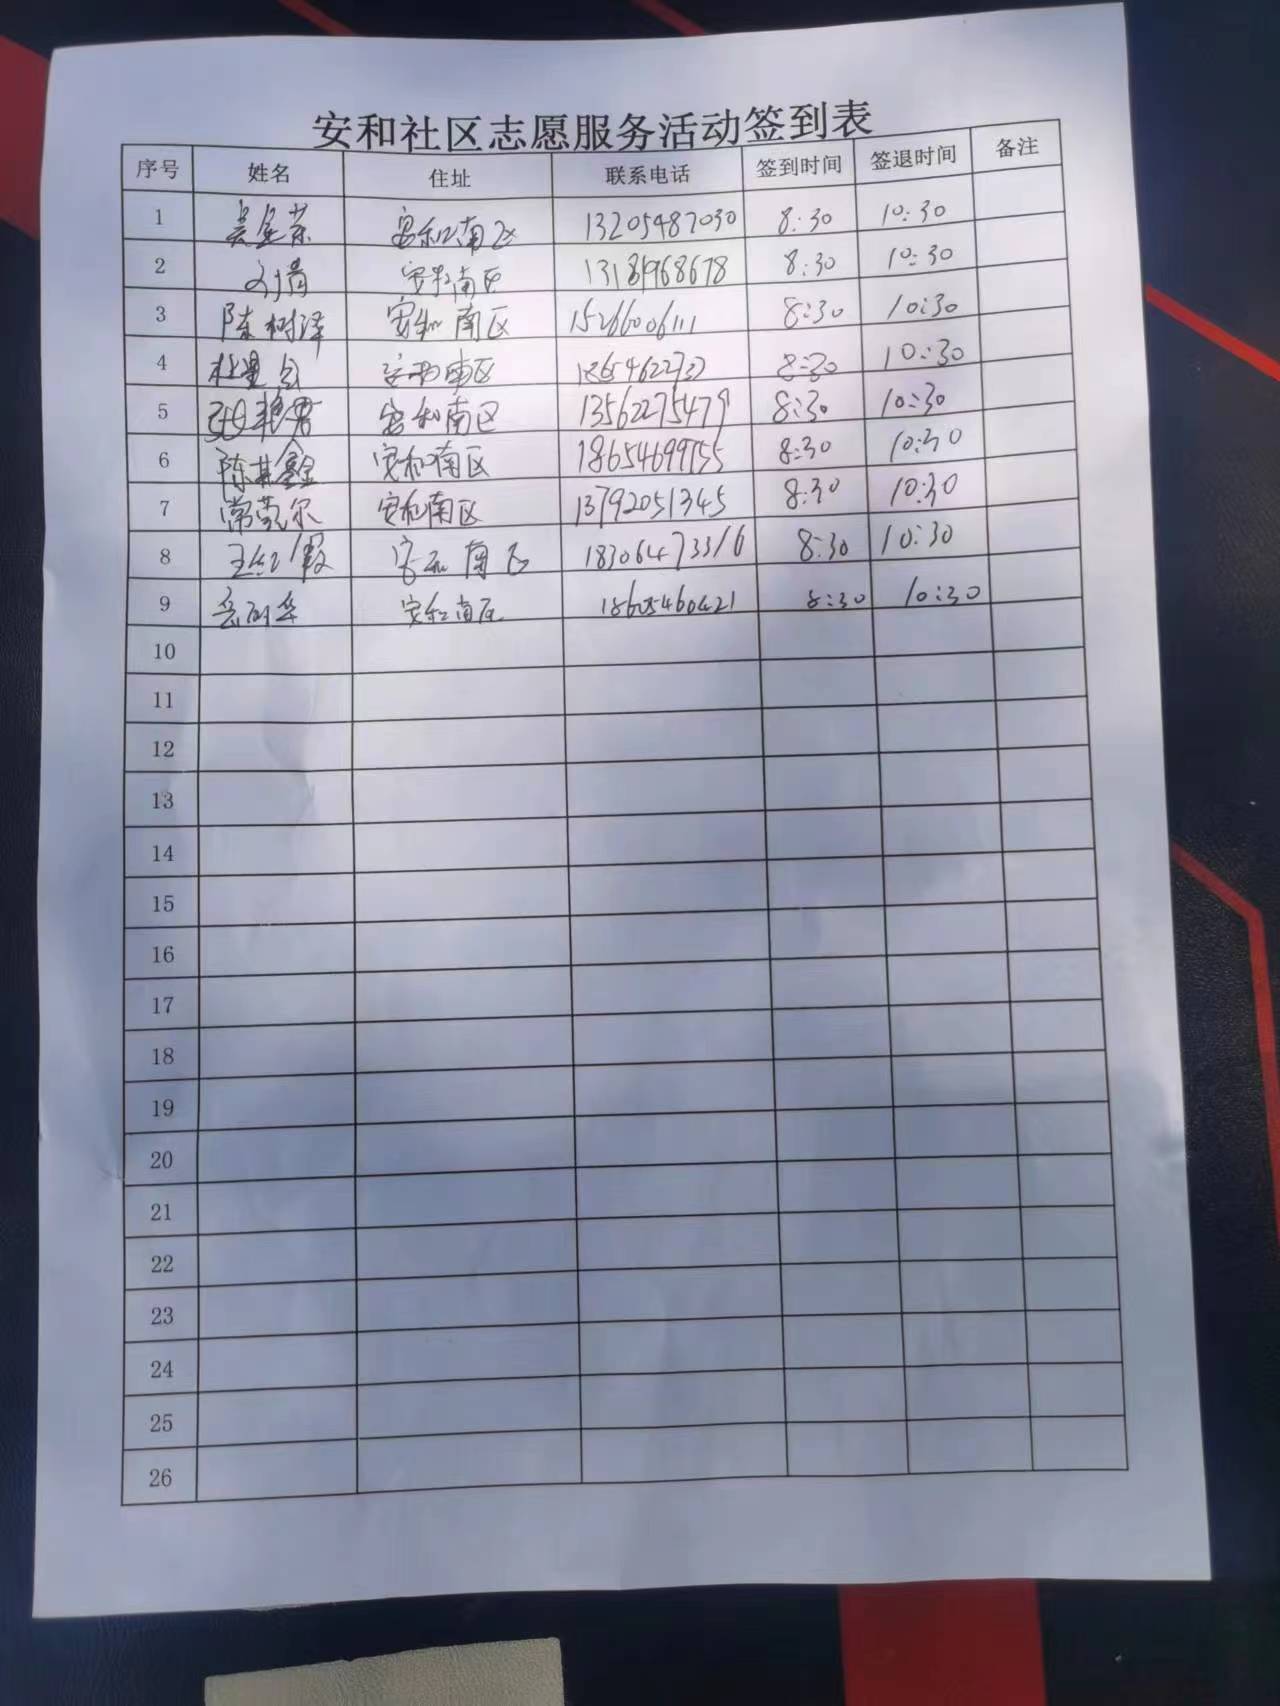 安和社区志愿服务活动签到表
序号 姓名 住址 联系电话 签到时间 签退时间 备注
1 安和南区 13205487030 8:30 10:30
2 刘青 安和南区 13181968678 8:30 10:30
3 陈树泽 安和南区 15266006111 8:30 10:30
4 安和南区 8:30 10:30
5 张艳君 安和南区 13562275479 8:30 10:30
6 陈其鑫 安和南区 18654699755 8:30 10:30
7 安和南区 13792051345 8:30 10:30
8 王红霞 安和南区 18306473316 8:30 10:30
9 安和南区 18605460421 8:30 10:30
10
11
12
13
14
15
16
17
18
19
20
21
22
23
24
25
26